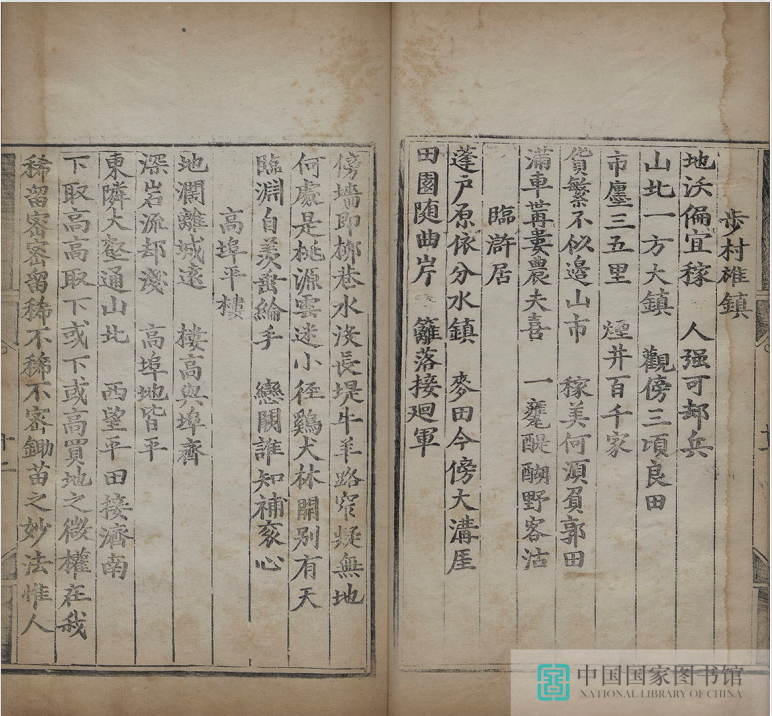 步村雄鎮
地沃偏宜稼　人强可却兵
山北一方大鎮　觀傍三頃良田
市廛三五里　煙井百千家
貨繁不似邊山市　稼美何須負郭田
滿車篝簍農夫喜　一甕醍醐野客沽
臨滸居
蓬户原依分水鎮　麥田今傍大溝厓
田園随曲岸　籬落接廻軍
傍墻即柳巷水没長堤牛羊路窄疑無地
何處是桃源雲迷小徑鷄犬林開别有天
臨淵自羡垂綸手　戀闕誰知補衮心
高埠平樓
地濶離城遠　樓高與埠齊
深岩流却淺　高埠地皆平
東隣大壑通山北　西望平田接濟南
下取高高取下或下或高買地之微權在我
稀留密密留稀不稀不密鋤苗之妙法惟人
十二
中国国家图书馆
NATIONAL LIBRARY OF CHINA